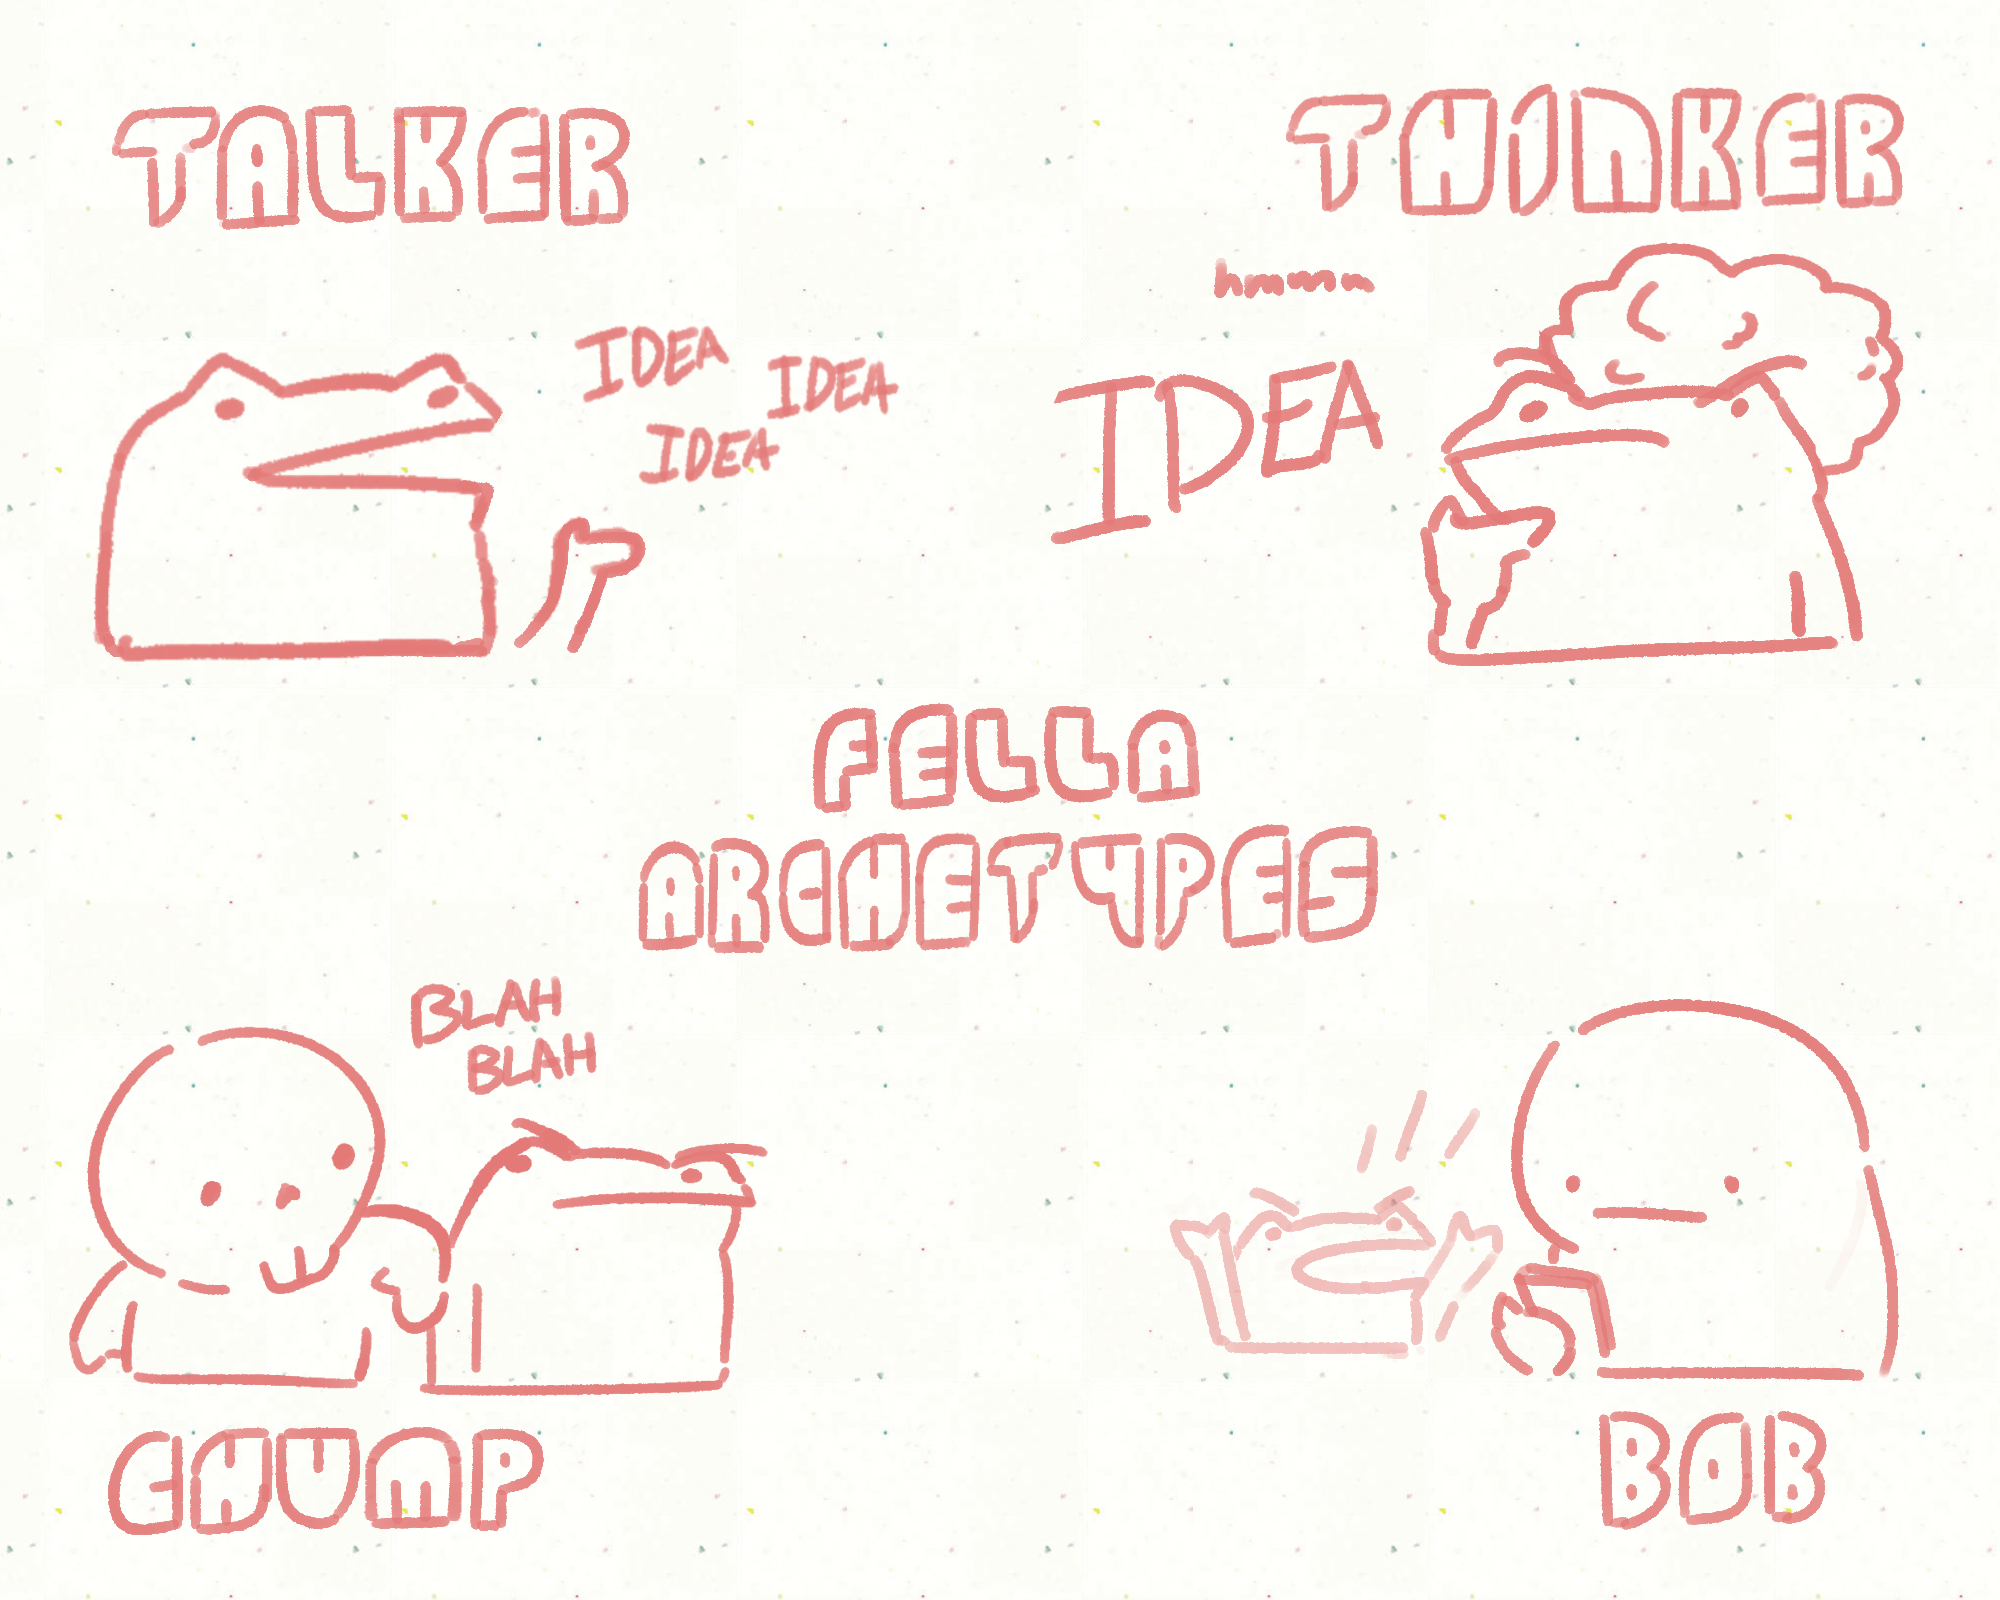 TALKER
THINKER
hmmmm
IDEA
IDEA
IDEA
IDEA
FELLA
ARCHETYPES
BLAH
BLAH
CHUMP
BOB